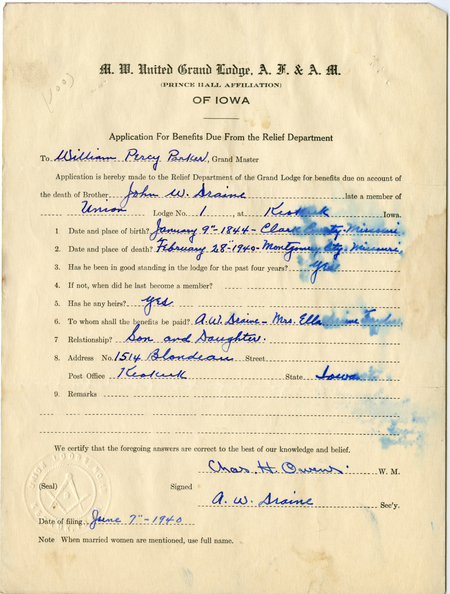 (100)
M. W. United Grand Lodge, A. F. & A. M.
(PRINCE HALL AFFILIATION)
OF IOWA
Application For Benefits Due From the Relief Department
To William Percy Parker, Grand Master
Application is hereby made to the Relief Department of the Grand Lodge for benefits due on account of
the death of Brother John W. Draine late a member of
Union Lodge No. 1 at Keokuk Iowa.
1 Date and place of birth? January 9" - 1844 - Clark County - Missouri.
2 Date and place of death? February 28" 1940 - Montgomery City - Missouri,
3 Has he been in good standing in the lodge for the past four years? Yes
4 If not, when did he last become a member?
5 Has he any heirs? Yes
6 To whom shall the benefits be paid? A. W. Draine - Mrs. Ella Draine
7 Relationship? Son and Daughter.
8 Address No. 1514 Blondeau Street
Post Office Keokuk State Iowa
9 Remarks
We certify that the foregoing answers are correct to the best of our knowledge and belief.
Chas. H. Owens. W. M.
(Seal) Signed
A. W. Draine Sec'y.
Date of filing June 7" - 1940
Note When married women are mentioned, use full name.